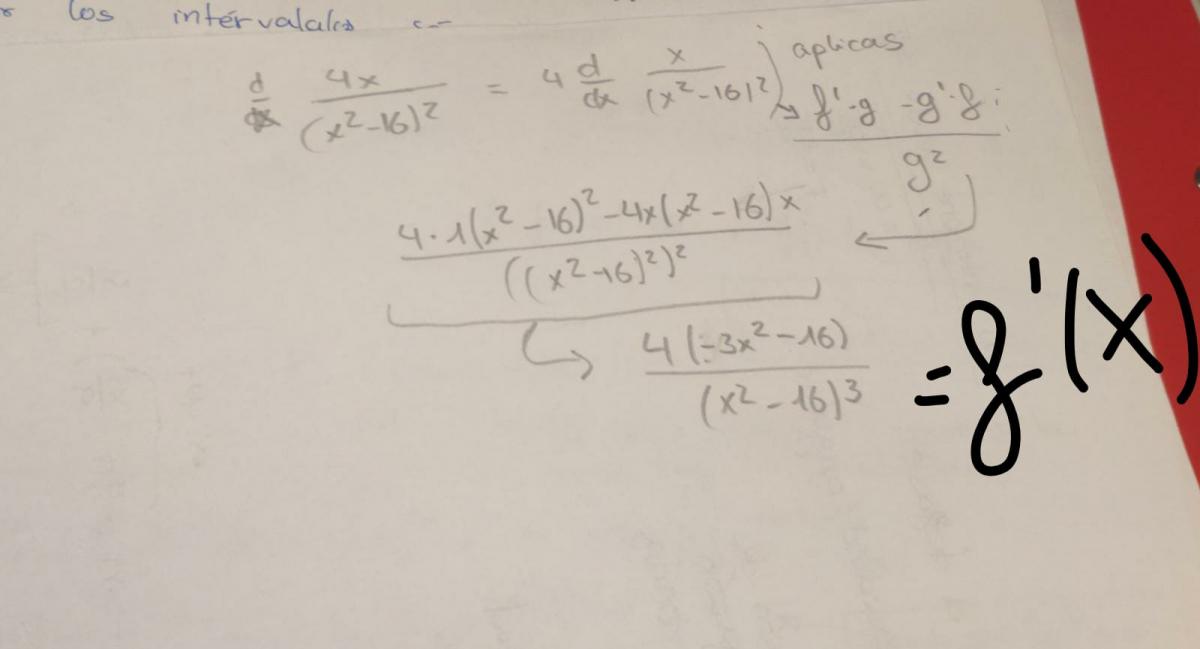 los intérvalalos
d/dx 4x/(x²-16)² = 4 d/dx x/(x²-16)²
aplicas
f'·g - g'·f / g²
4·1(x²-16)² - 4x(x²-16)x / ((x²-16)²)²
4(-3x²-16) / (x²-16)³ = f'(x)